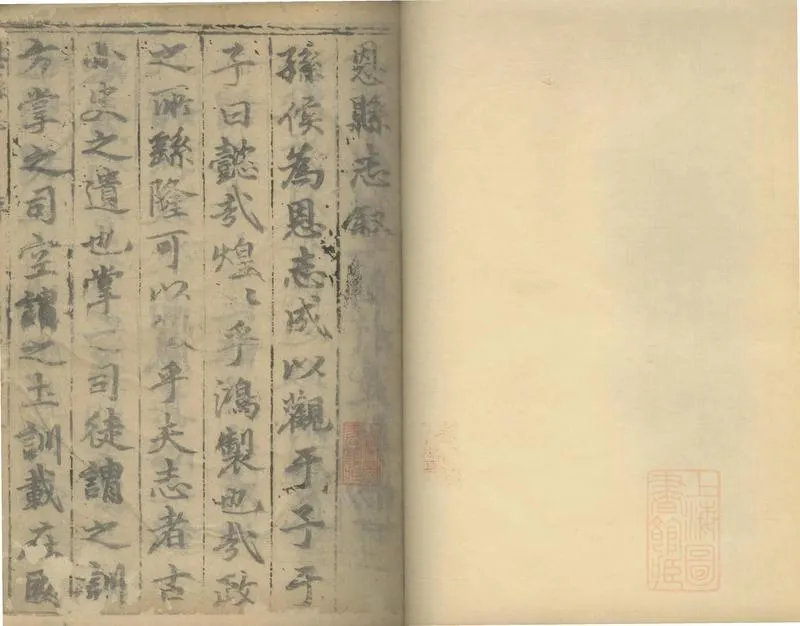 恩縣志敘
孫侯為恩志成以觀于子于
子曰懿哉煌〻乎鴻製也哉政
之所繇隆可以 乎夫志者古
小史之遺也掌之司徒謂之訓
方掌之司空謂之土訓載在
上海圖書館藏